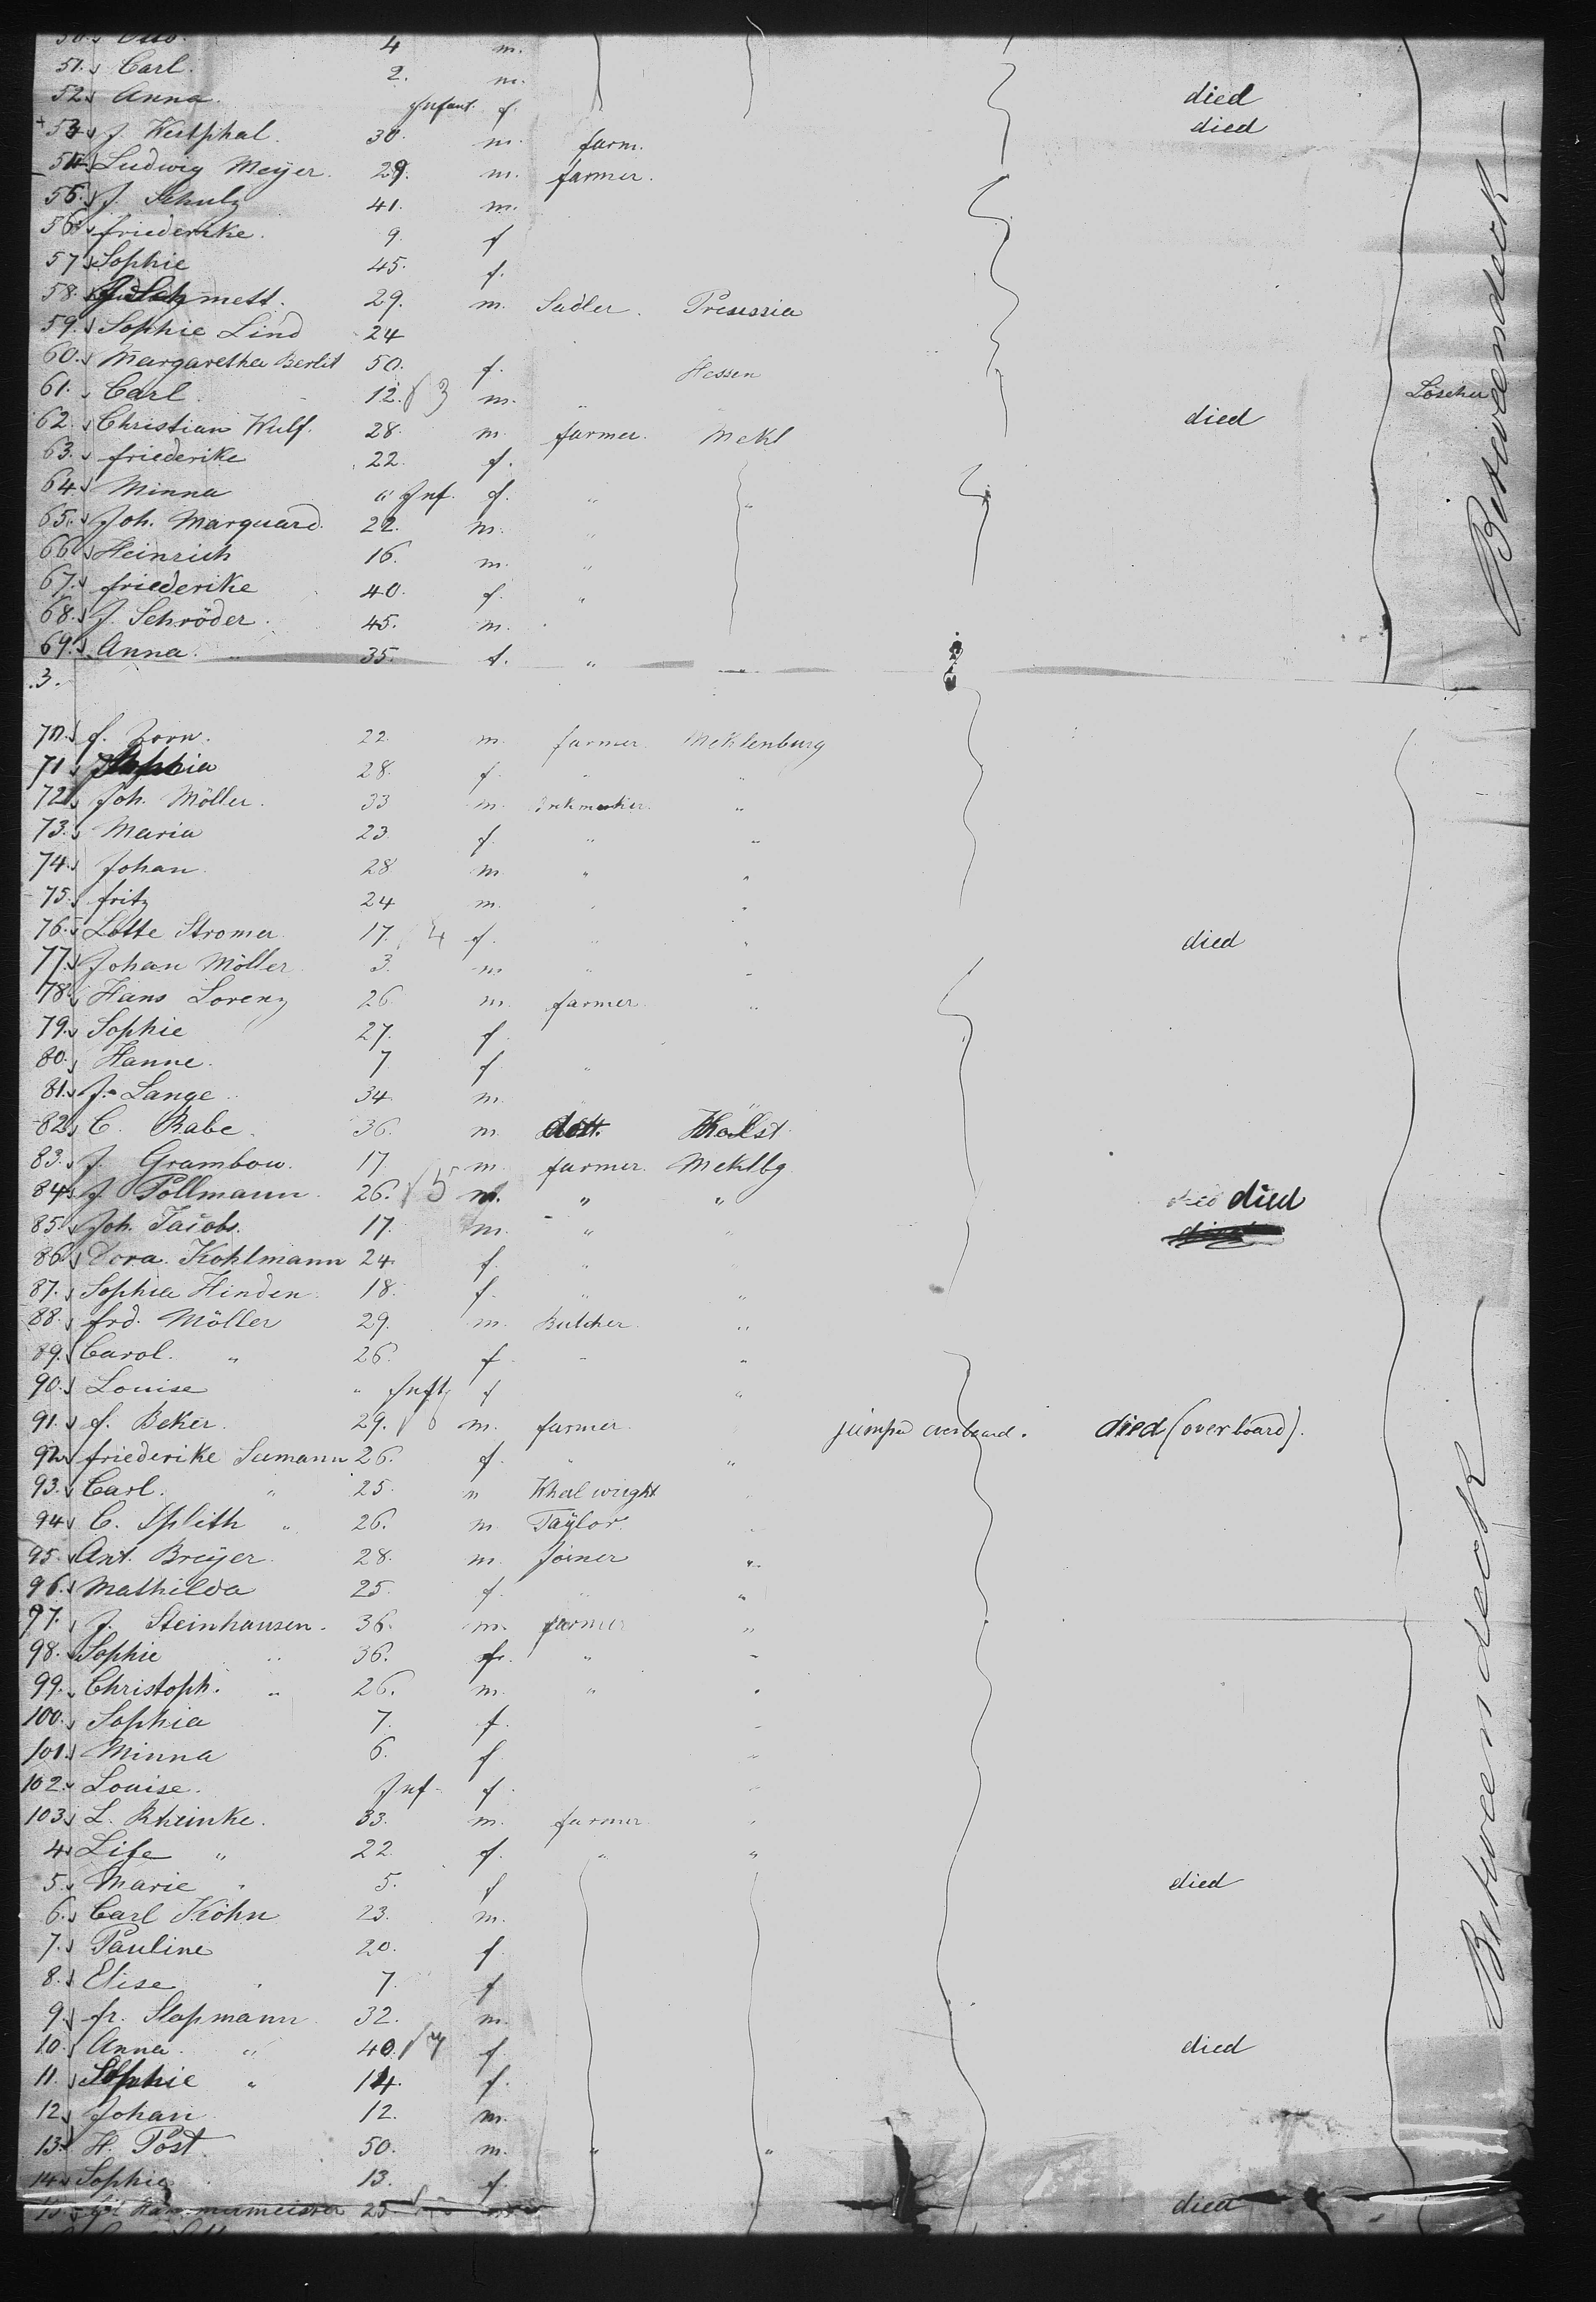 50. Otto. 4 m.
51. Carl. 2. m.
52. Anna. Infant. f. died
53. J. Westphal. 30. m. farm. died
54. Ludwig Meÿer. 29. m. farmer.
55. J. Schulz 41. m.
56. friederike. 9. f
57. Sophie 45. f.
58. mett. 29. m. Sadler. Preussia
59. Sophie Lind 24
60. Margaretha Berlit 50. f. Hessen
61. Carl. 12. 3 m. " Löscher
62. Christian Wulf. 28. m. farmer. Mekl died
63. friederike 22. f.
64. Minna " Inf. f. " "
65. Joh. Marquard. 22. m. "
66. Heinrich 16. m. "
67. friederike 40. f. "
68. J. Schröder. 45. m.
69. Anna. " 35. f. " "
Betweendeck
.3.
70. f. Zorn. 22. m. farmer. Meklenburg
71. Sophia 28. f. " "
72. Joh. Möller. 33 m. "
73. Maria 23. f. " "
74. Johan 28. m. " "
75. fritz 24 m. "
76. Lotte Stromer. 17. 4 f. " " died
77. Johan Möller 3. m. " "
78. Hans Lorenz 26. m. farmer "
79. Sophie 27. f
80. Hanne. 7 f "
81. J. Lange 34. m. "
82. C. Rabe. 36. m. Hollst.
83. J. Grambow. 17. m. farmer. Meklbg.
84. J. Pollmann. 26. 5 m. " " died died
85. Joh. Jacobs. 17. m. " "
86. Dora Kohlmann 24. f. "
87. Sophia Hinden. 18. f. " "
88. frd. Möller 29. m. Butcher "
89. Carol. " 26. f " "
90. Louise " Inft f "
91. f. Beker. 29. 6 m. farmer. jumped overboard. died (overboard).
92. friederike Seemann 26. f. " "
93. Carl. " 25. m Wheelwright
94. C. Splith " 26. m Taÿlor.
95. Ant. Breÿer. 28. m. Joiner "
96. Mathilda 25. f. "
97. J. Steinhausen. 36. m. farmer "
98. Sophie " 36. f. " "
99. Christoph. " 26. m. " "
100. Sophia 7. f. "
101. Minna 6. f "
102. Louise. Inf. f. "
103. L. Rheinke. 33. m. farmer "
4. Lise " 22. f. " "
5. Marie " 5. f died
6. Carl Köhn 23. m.
7. Pauline 20. f
8. Elise " 7. f
9. fr. Slapmann 32. m.
10. Anna. " 40. 7 f. died
11. Sophie " 14. f.
12. Johan 12. m.
13. H. Post 50. m. " "
14. Sophie. 13. f.
15. 25 died
Betweendeck